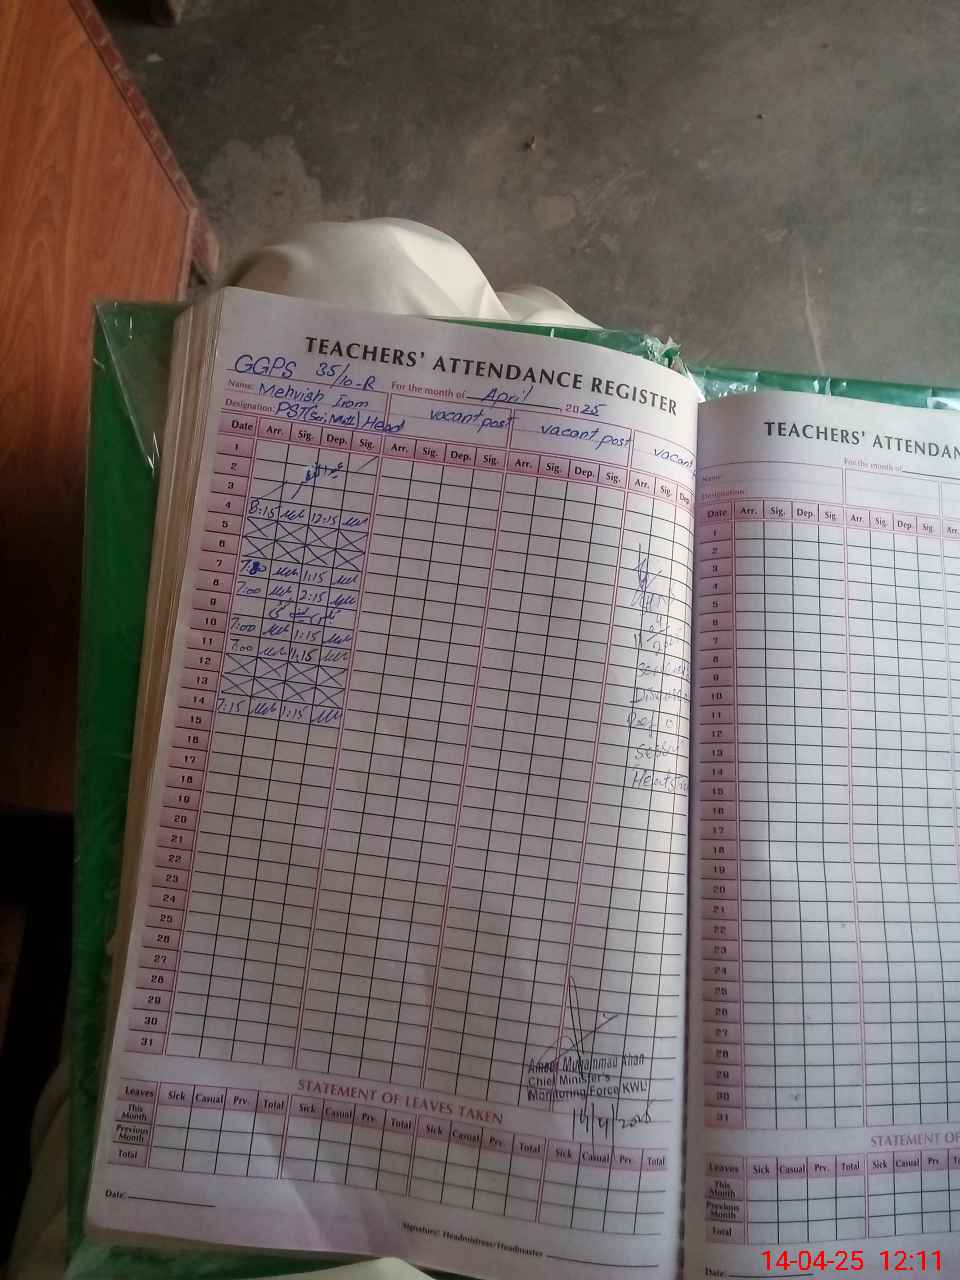 TEACHERS' ATTENDANCE REGISTER
GGPS 35/10-R
For the month of April, 2025
Name: Mehvish Irom
Designation: PST(Sci, Math) Head
vacant post
vacant post
vacant
Date Arr. Sig. Dep. Sig. Arr. Sig. Dep. Sig. Arr. Sig. Dep. Sig. Arr. Sig. Dep.
1
2
3
4 8:15 12:15
5
6
7 1:15
8 7:00 2:15
9
10 7:00 1:15
11 7:00 1:15
12
13
14 7:15 1:15
15
16
17
18
19
20
21
22
23
24
25
26
27
28
29
30
31
Muhammad Khan
Chief Minister's
Monitoring Force KWL
14/4/2025
STATEMENT OF LEAVES TAKEN
Leaves Sick Casual Prv. Total Sick Casual Prv. Total Sick Casual Prv. Total Sick Casual Prv. Total
This Month
Previous Month
Total
Date:
Signature: Headmistress/Headmaster
TEACHERS' ATTENDAN
For the month of
Name:
Designation:
Date Arr. Sig. Dep. Sig. Arr. Sig. Dep. Sig. Arr.
1
2
3
4
5
6
7
8
9
10
11
12
13
14
15
16
17
18
19
20
21
22
23
24
25
26
27
28
29
30
31
STATEMENT OF
Leaves Sick Casual Prv. Total Sick Casual Prv. Total
This Month
Previous Month
Total
Date:
14-04-25 12:11